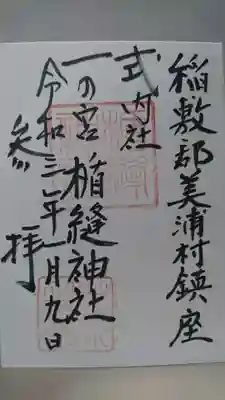 稲敷郡美浦村鎮座
式内社
一の宮 楯縫神社
令和三年一月九日
参拝